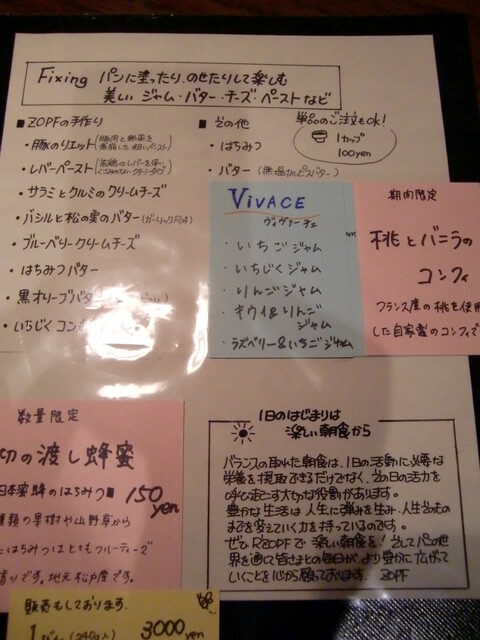 Fixing パンに塗ったり、のせたりして楽しむ
美しい ジャム・バター・チーズ・ペーストなど
■ ZOPFの手作り
・豚のリエット(豚肉と野菜を
・レバーペースト
・サラミとクルミのクリームチーズ
・バジルと松の実のバター(ガーリック風味)
・ブルーベリークリームチーズ
・はちみつバター
・黒オリーブバター
・いちじくコン
■ その他
・はちみつ
バター(無塩カルピスバター)
単品のご注文もOK!
1カップ
100yen
VIVACE
ヴィヴァーチェ
・いちごジャム
・いちじくジャム
・りんごジャム
・キウイ&りんご
ジャム
・ラズベリー&いちごジャム
期間限定
桃とバニラの
コンフィ
フランス産の桃を使用
した自家製のコンフィで
数量限定
切の渡し蜂蜜
日本蜜蜂のはちみつ 150
yen
種類の果樹や山野草から
はちみつはとてもフルーティーで
香りです。地元松戸産です。
販売もしております。
3000yen
1日のはじまりは
楽しい朝食から
バランスの取れた朝食は、1日の活動に必要な
栄養を摂取できるだけでなく、その日の活力を
呼び起こす大切な役割があります。
豊かな生活は人生に弾みを生み、人生そのもの
までを変えていく力を持っているのです。
ぜひRZOPFで楽しい朝食を!そしてパンの世
界を通じて皆さまとの毎日が、より豊かに広がって
いくことを心から願っております。ZOPF